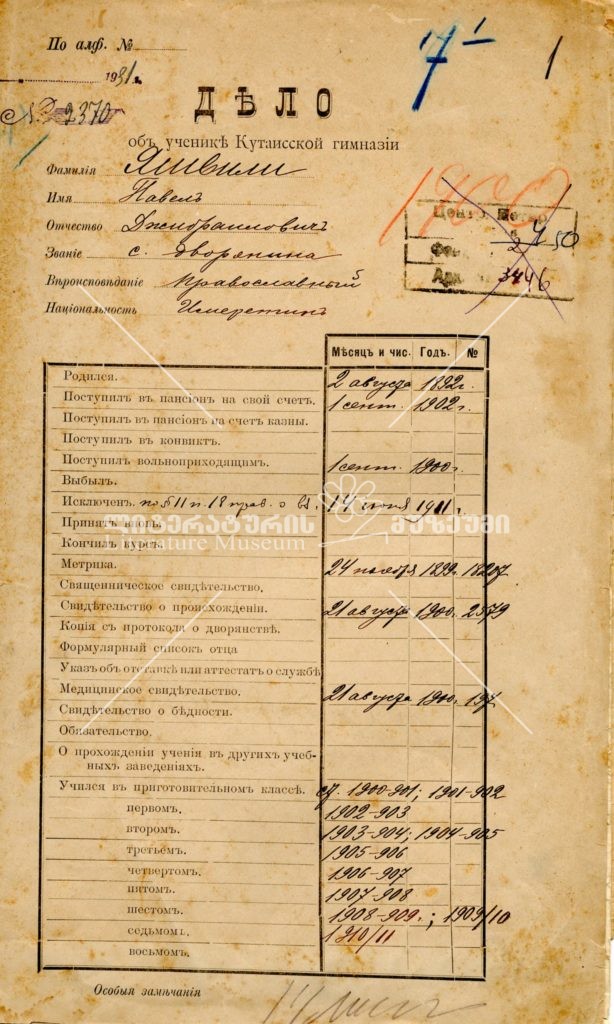 По алф. №
1931 г.
7 1
1
№ 2370
ДѢЛО
объ ученикѣ Кутаисской гимназіи
Фамилія Яшвили
Имя Павелъ
Отчество Джибраиловичъ
Званіе с. дворянина
Вѣроисповѣданіе православный
Національность Имеретинъ
1900
3446
Мѣсяцъ и чис. Годъ. №
Родился. 2 августа 1892 г.
Поступилъ въ пансіонъ на свой счетъ. 1 сент. 1902 г.
Поступилъ въ пансіонъ на счетъ казны.
Поступилъ въ конвиктъ.
Поступилъ вольноприходящимъ. 1 сент. 1900 г.
Выбылъ.
Исключен. по § 11 п. 18 прав. о 1911 г.
Принятъ вновь.
ლიტერატურის მუზეუმი
Кончилъ курсъ.
Literature Museum
Метрика. 24 ноября 1899 г. 18207
Священническое свидѣтельство.
Свидѣтельство о происхожденіи. 21 августа 1900 г. 2579
Копія съ протокола о дворянствѣ.
Формулярный списокъ отца
Указъ объ отставкѣ или аттестатъ о службѣ
Медицинское свидѣтельство. 21 августа 1900 г. 197
Свидѣтельство о бѣдности.
Обязательство.
О прохожденіи ученія въ другихъ учеб-
ныхъ заведеніяхъ.
Учился въ приготовительномъ классѣ. 1900-901; 1901-902
первомъ. 1902-903
второмъ. 1903-904; 1904-905
третьемъ. 1905-906
четвертомъ. 1906-907
пятомъ. 1907-908
шестомъ. 1908-909 г.; 1909/10
седьмомъ. 1910/11
восьмомъ.
Особыя замѣчанія